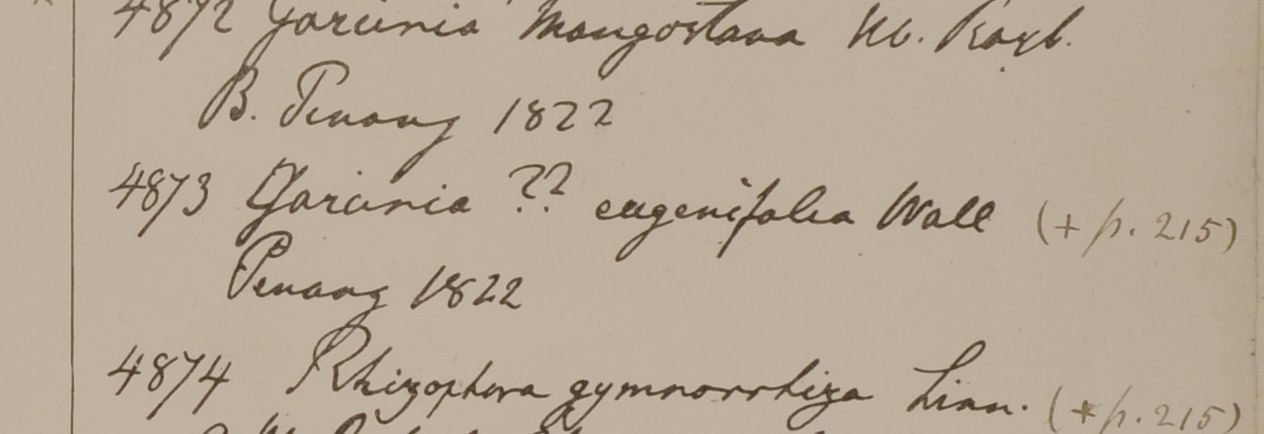 4872 Garcinia Mangostana Hb. Roxb.
B. Penang 1822
4873 Garcinia ?? eugenifolia Wall (+ p. 215)
Penang 1822
4874 Rhizophora gymnorrhiza Linn. (* p. 215)